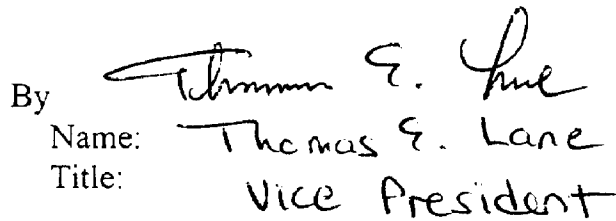 By Thomas E. Lane
Name: Thomas E. Lane
Title: Vice President